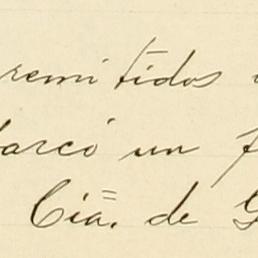 remitidos
barcó un f
Cía. de G